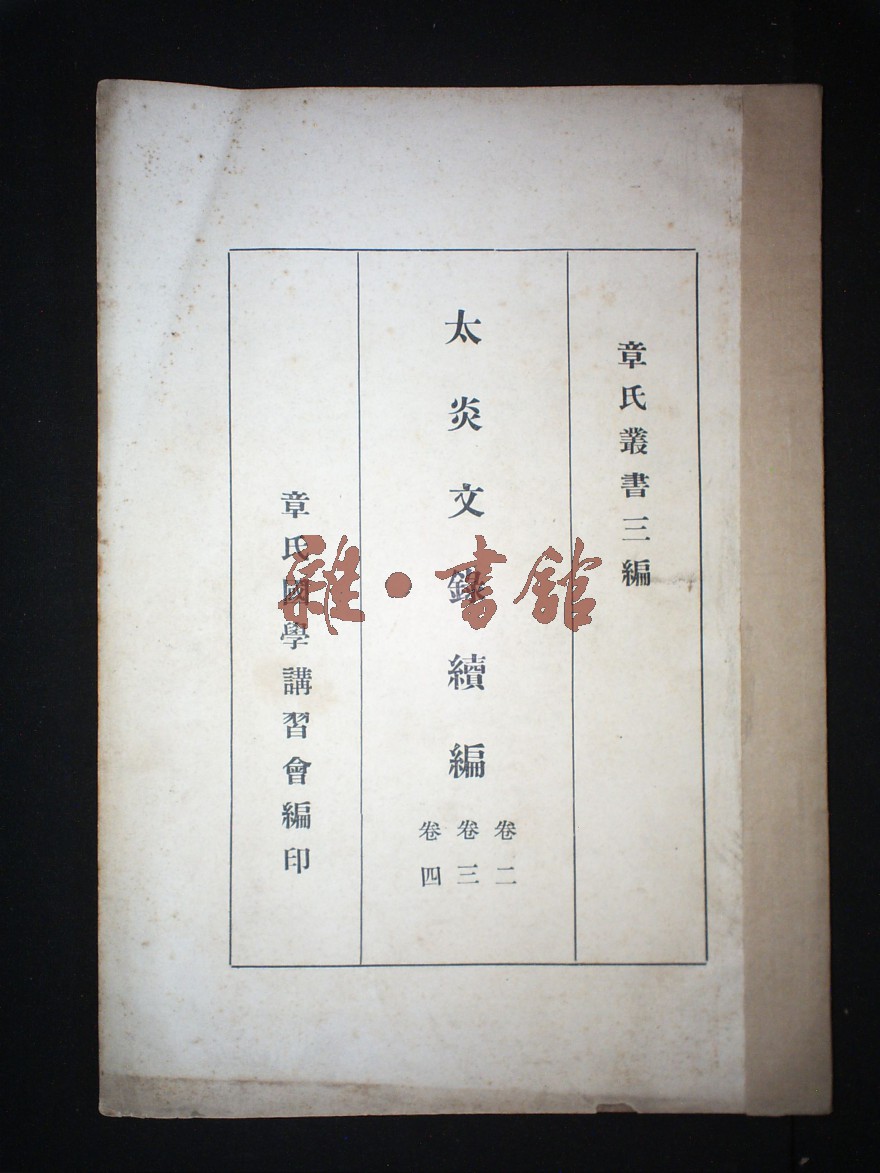 章氏叢書三編
太炎文錄續編
卷二
卷三
卷四
章氏國學講習會編印
雜·書館